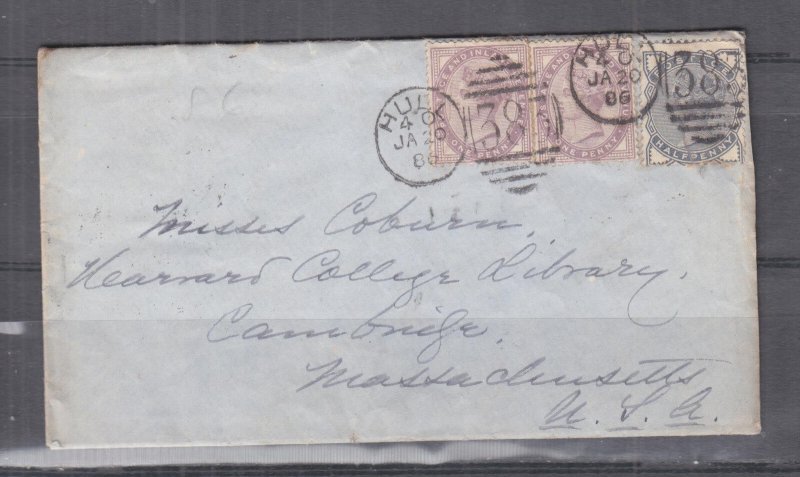 HULL
40
JA 20
86
383
HULL
40
JA 20
86
38
ONE PENNY
HALFPENNY
Misses Coburn,
Harvard College Library,
Cambridge,
Massachusetts
U. S. A.